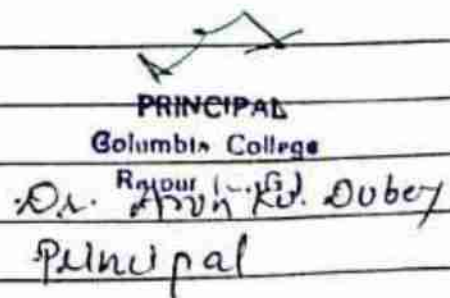 PRINCIPAL
Columbia College
Raipur (C.G.)
Dr. Arun Kr. Dubey
Principal